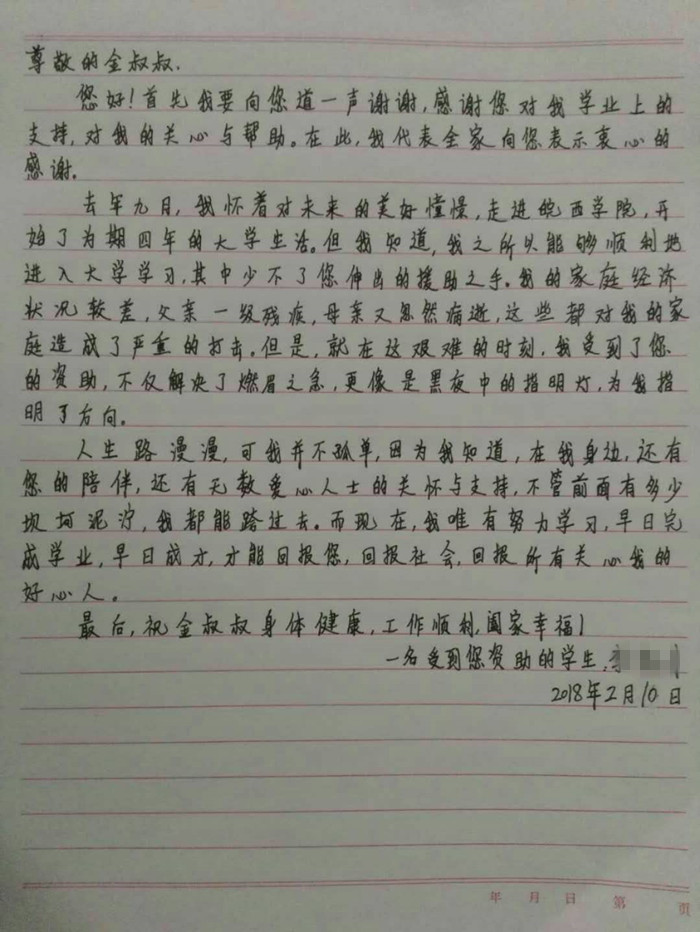 尊敬的金叔叔.
您好!首先我要向您道一声谢谢,感谢您对我学业上的
支持,对我的关心与帮助。在此,我代表全家向您表示衷心的
感谢。
去年九月,我怀着对未来的美好憧憬,走进皖西学院,开
始了为期四年的大学生活。但我知道,我之所以能够顺利地
进入大学学习,其中少不了您伸出的援助之手。我的家庭经济
状况较差,父亲一级残疾,母亲又忽然病逝,这些都对我的家
庭造成了严重的打击。但是,就在这艰难的时刻,我受到了您
的资助,不仅解决了燃眉之急,更像是黑夜中的指明灯,为我指
明了方向。
人生路漫漫,可我并不孤单,因为我知道,在我身边,还有
您的陪伴,还有无数爱心人士的关怀与支持,不管前面有多少
坝坷泥泞,我都能跨过去。而现在,我唯有努力学习,早日完
成学业,早日成才,才能回报您,回报社会,回报所有关心我的
好心人。
最后,祝金叔叔身体健康,工作顺利,阖家幸福!
一名受到您资助的学生:李
2018年2月10日
年 月 日 第 页